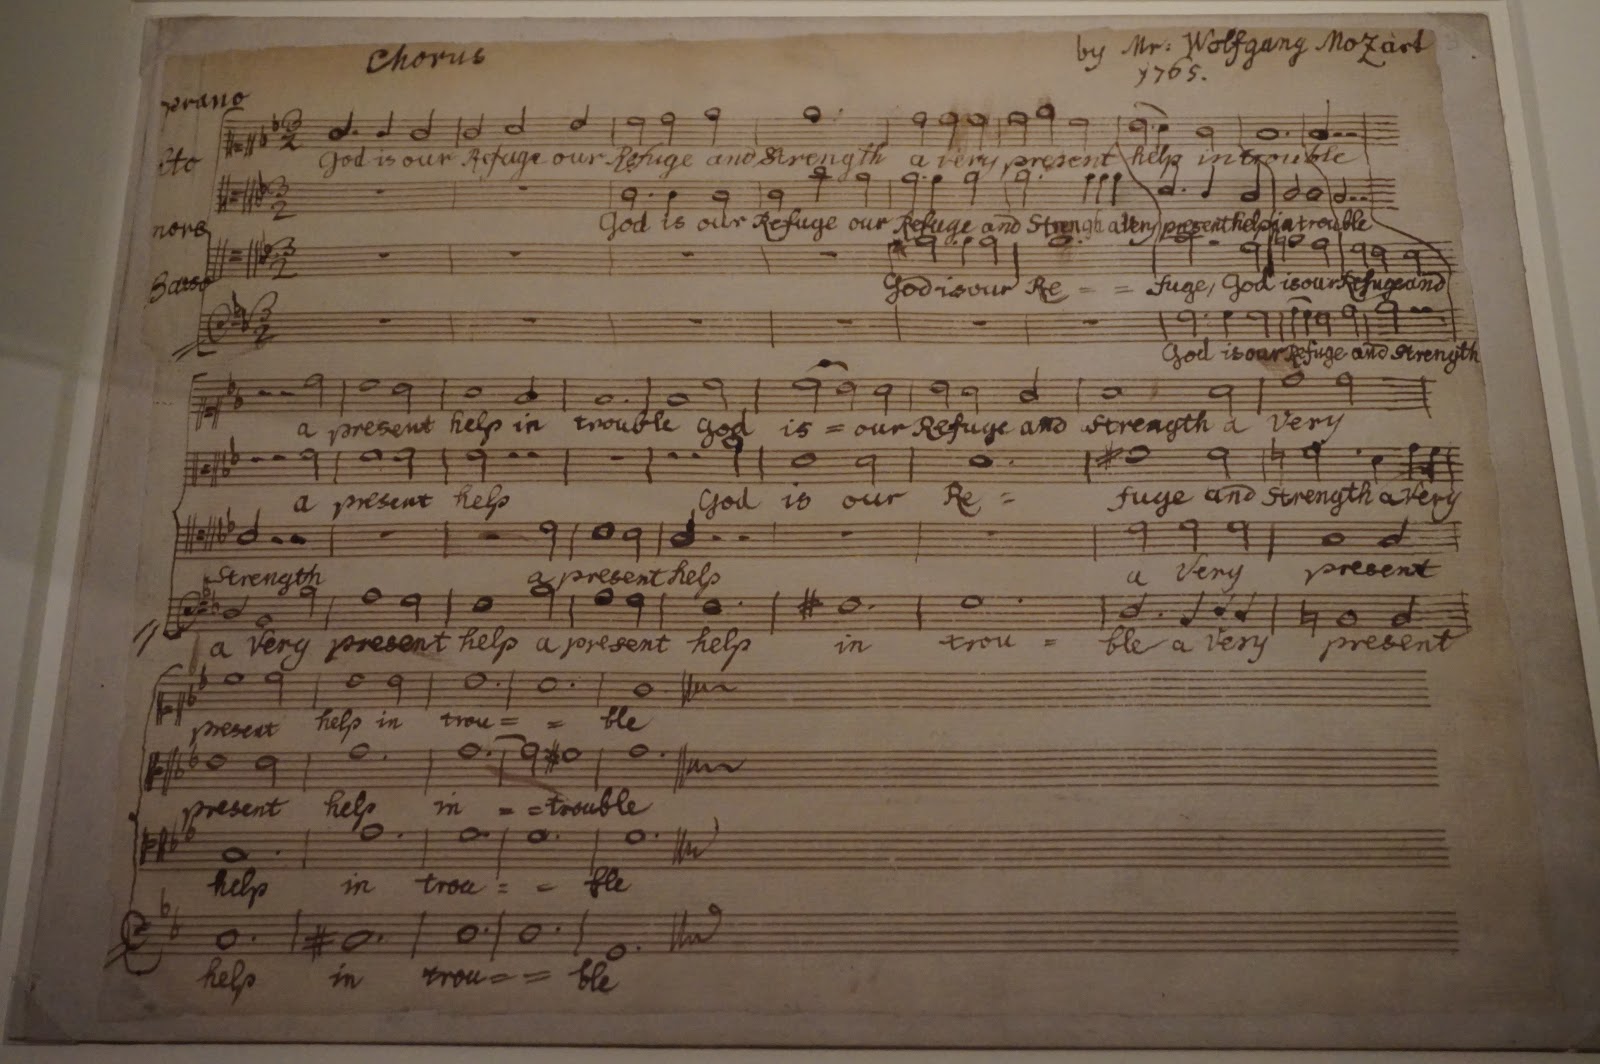 Chorus
by Mr: Wolfgang Mozart
1765.
prano
lto
nore
Basso
God is our Refuge our Refuge and Strength a very present help in trouble
God is our Refuge our Refuge and Strength a Very present help in trouble
God is our Re = = fuge, God is our Refuge and
God is our Refuge and Strength
a present help in trouble God is = our Refuge and Strength a Very
a present help God is our Re = fuge and Strength a Very
Strength a present help a Very present
a Very present help a present help in trou = ble a Very present
present help in trou = = ble
present help in = = trouble
help in trou = = ble
help in trou = = ble